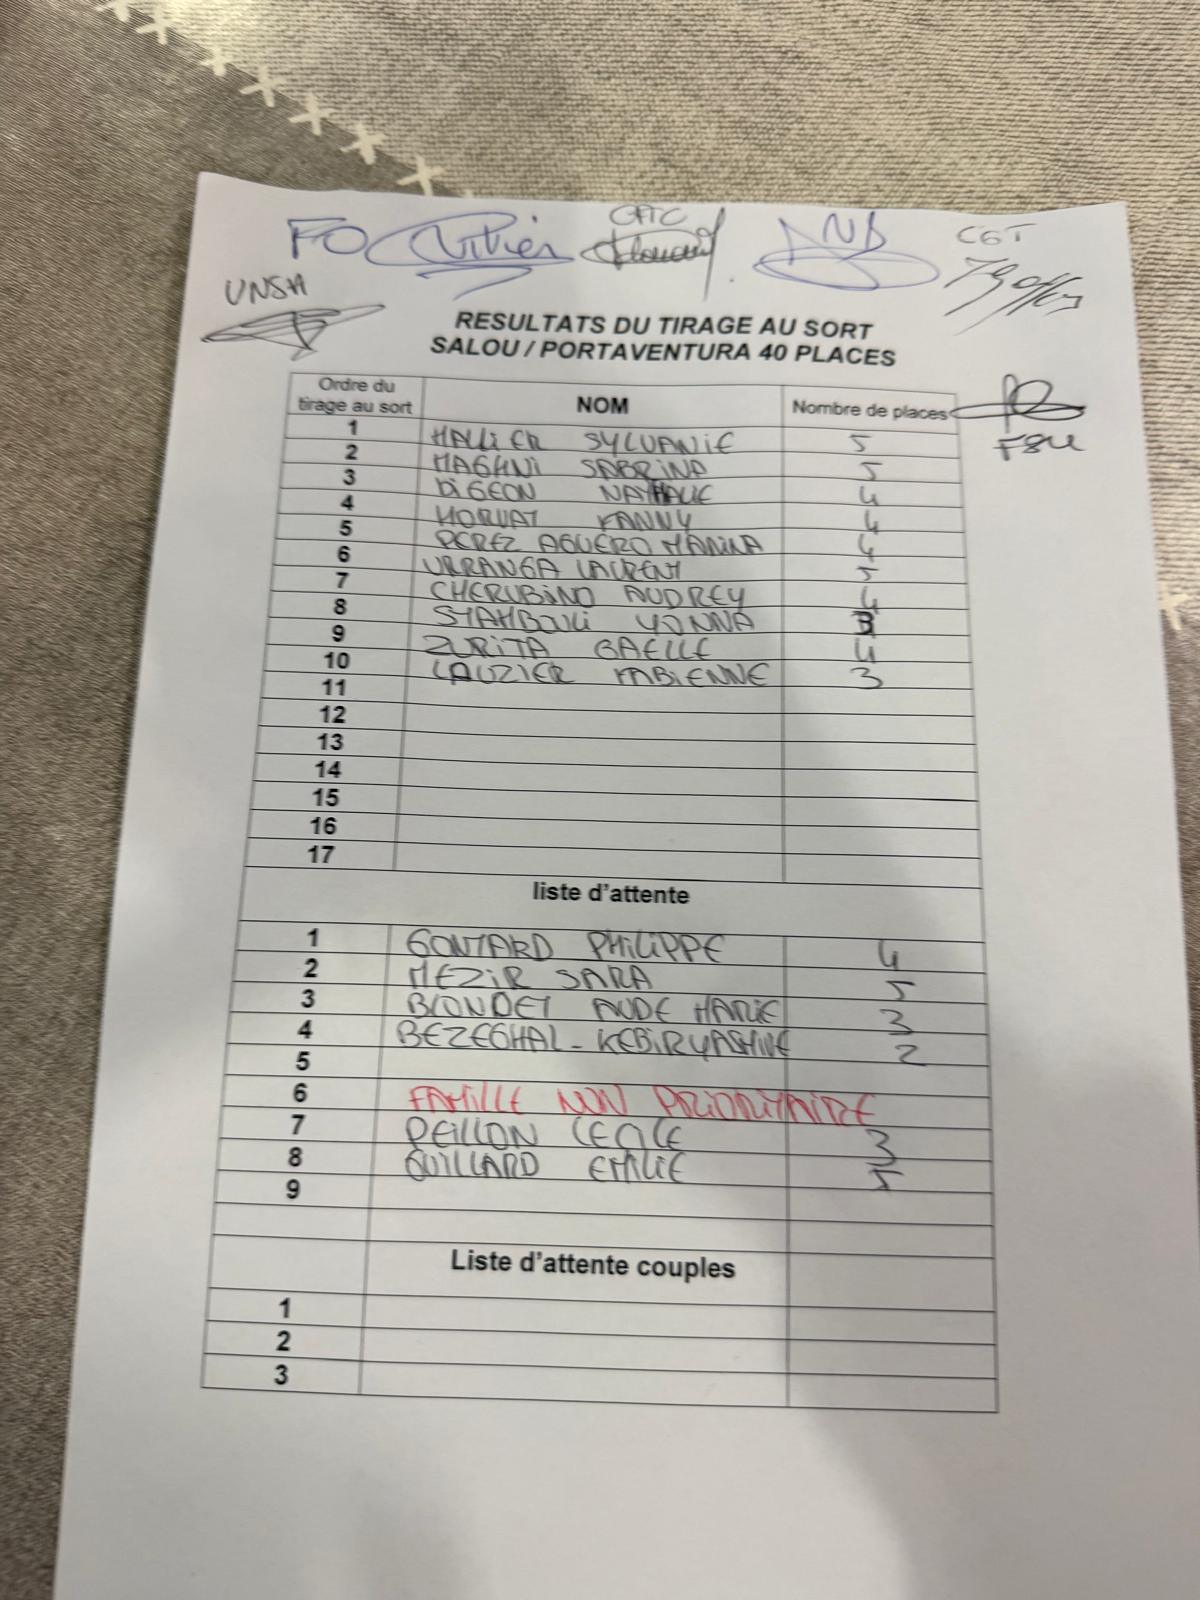 FO
CFTC
CGT
UNSA
RESULTATS DU TIRAGE AU SORT
SALOU / PORTAVENTURA 40 PLACES
FSU
Ordre du tirage au sort NOM Nombre de places
1 HALLIER SYLVANIE 5
2 MAGHNI SABRINA 5
3 DIGEON NATHALIE 4
4 HORVAT FANNY 4
5 PEREZ AGUERO MARINA 4
6 URRANGA LAURENT 5
7 CHERUBINO AUDREY 4
8 STAMBOULI YONNA 3
9 ZURITA GAELLE 4
10 LAUZIER FABIENNE 3
11
12
13
14
15
16
17
liste d'attente
1 GONTARD PHILIPPE 4
2 MEZIR SARA 5
3 BLONDET AUDE MARIE 3
4 BEZEGHAL-KEBIR YASMINE 2
5
6 FAMILLE NON PRIORITAIRE
7 PEILLON CECILE 3
8 GUILLARD EMILIE 5
9
Liste d'attente couples
1
2
3